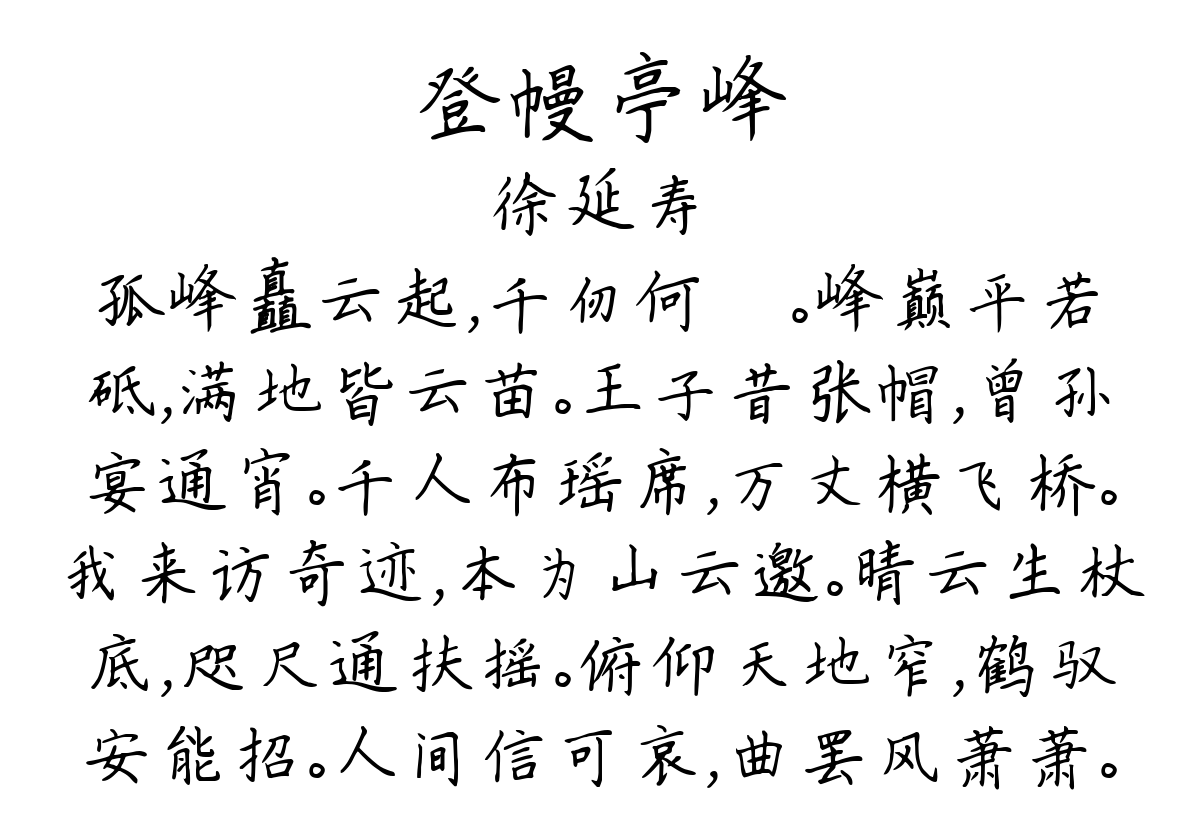 登幔亭峰
徐延寿
孤峰矗云起,千仞何 。峰巅平若
砥,满地皆云苗。王子昔张帽,曾孙
宴通宵。千人布瑶席,万丈横飞桥。
我来访奇迹,本为山云邀。晴云生杖
底,咫尺通扶摇。俯仰天地窄,鹤驭
安能招。人间信可哀,曲罢风萧萧。